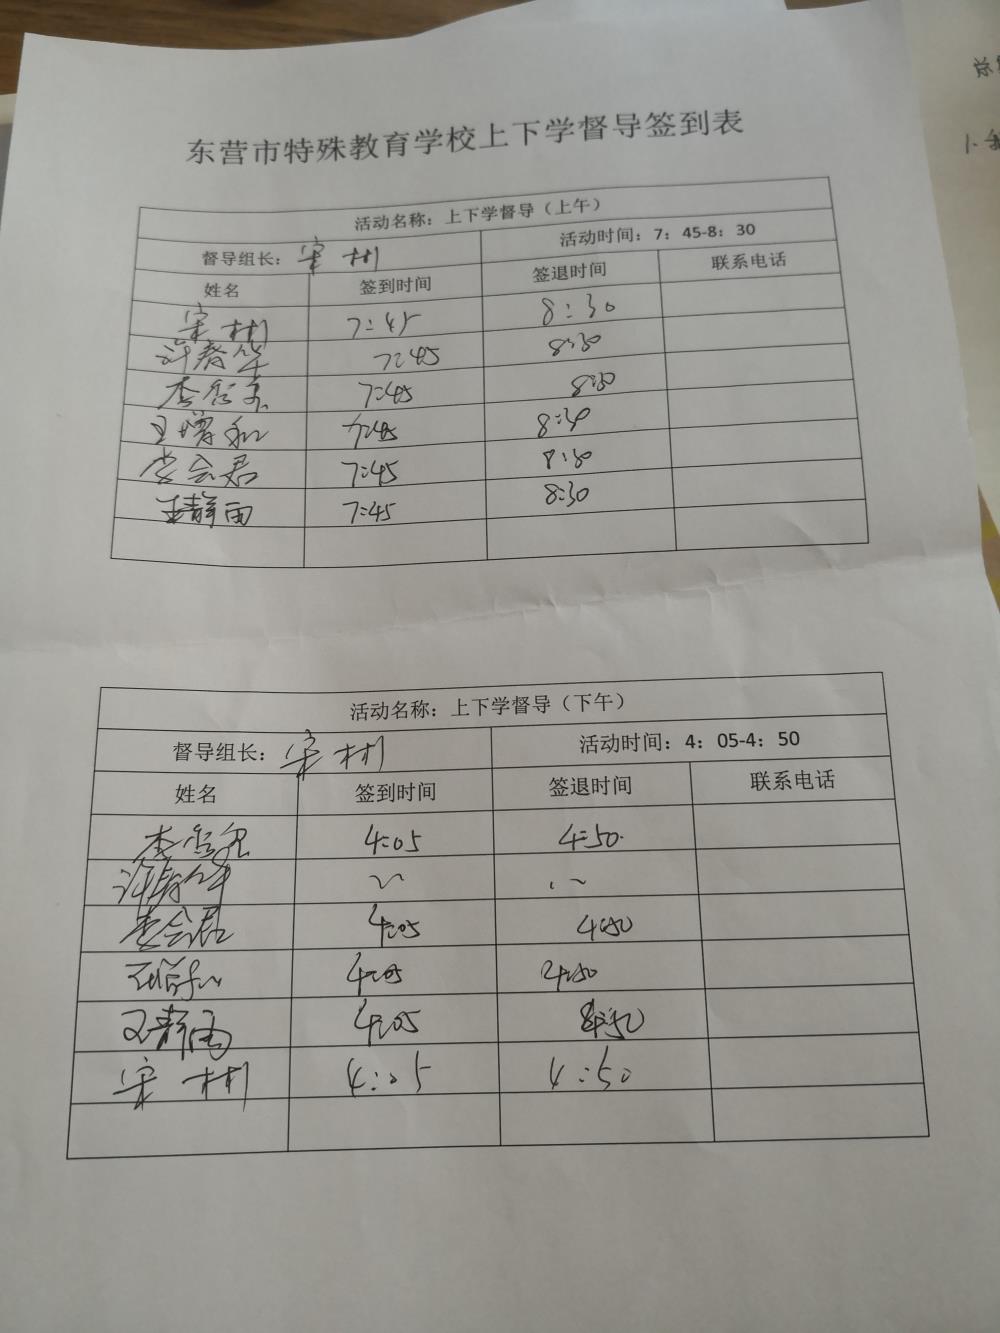 东营市特殊教育学校上下学督导签到表
活动名称：上下学督导（上午）
督导组长：宋彬 活动时间：7：45-8：30
姓名 签到时间 签退时间 联系电话
宋彬 7:45 8:30
许春华 7:45 8:30
7:45 8:30
王增和 7:45 8:30
李会君 7:45 8:30
王静雨 7:45 8:30
活动名称：上下学督导（下午）
督导组长：宋彬 活动时间：4：05-4：50
姓名 签到时间 签退时间 联系电话
4:05 4:50
许春华
李会君 4:05 4:50
4:05 4:50
王静雨 4:05 4:50
宋彬 4:05 4:50